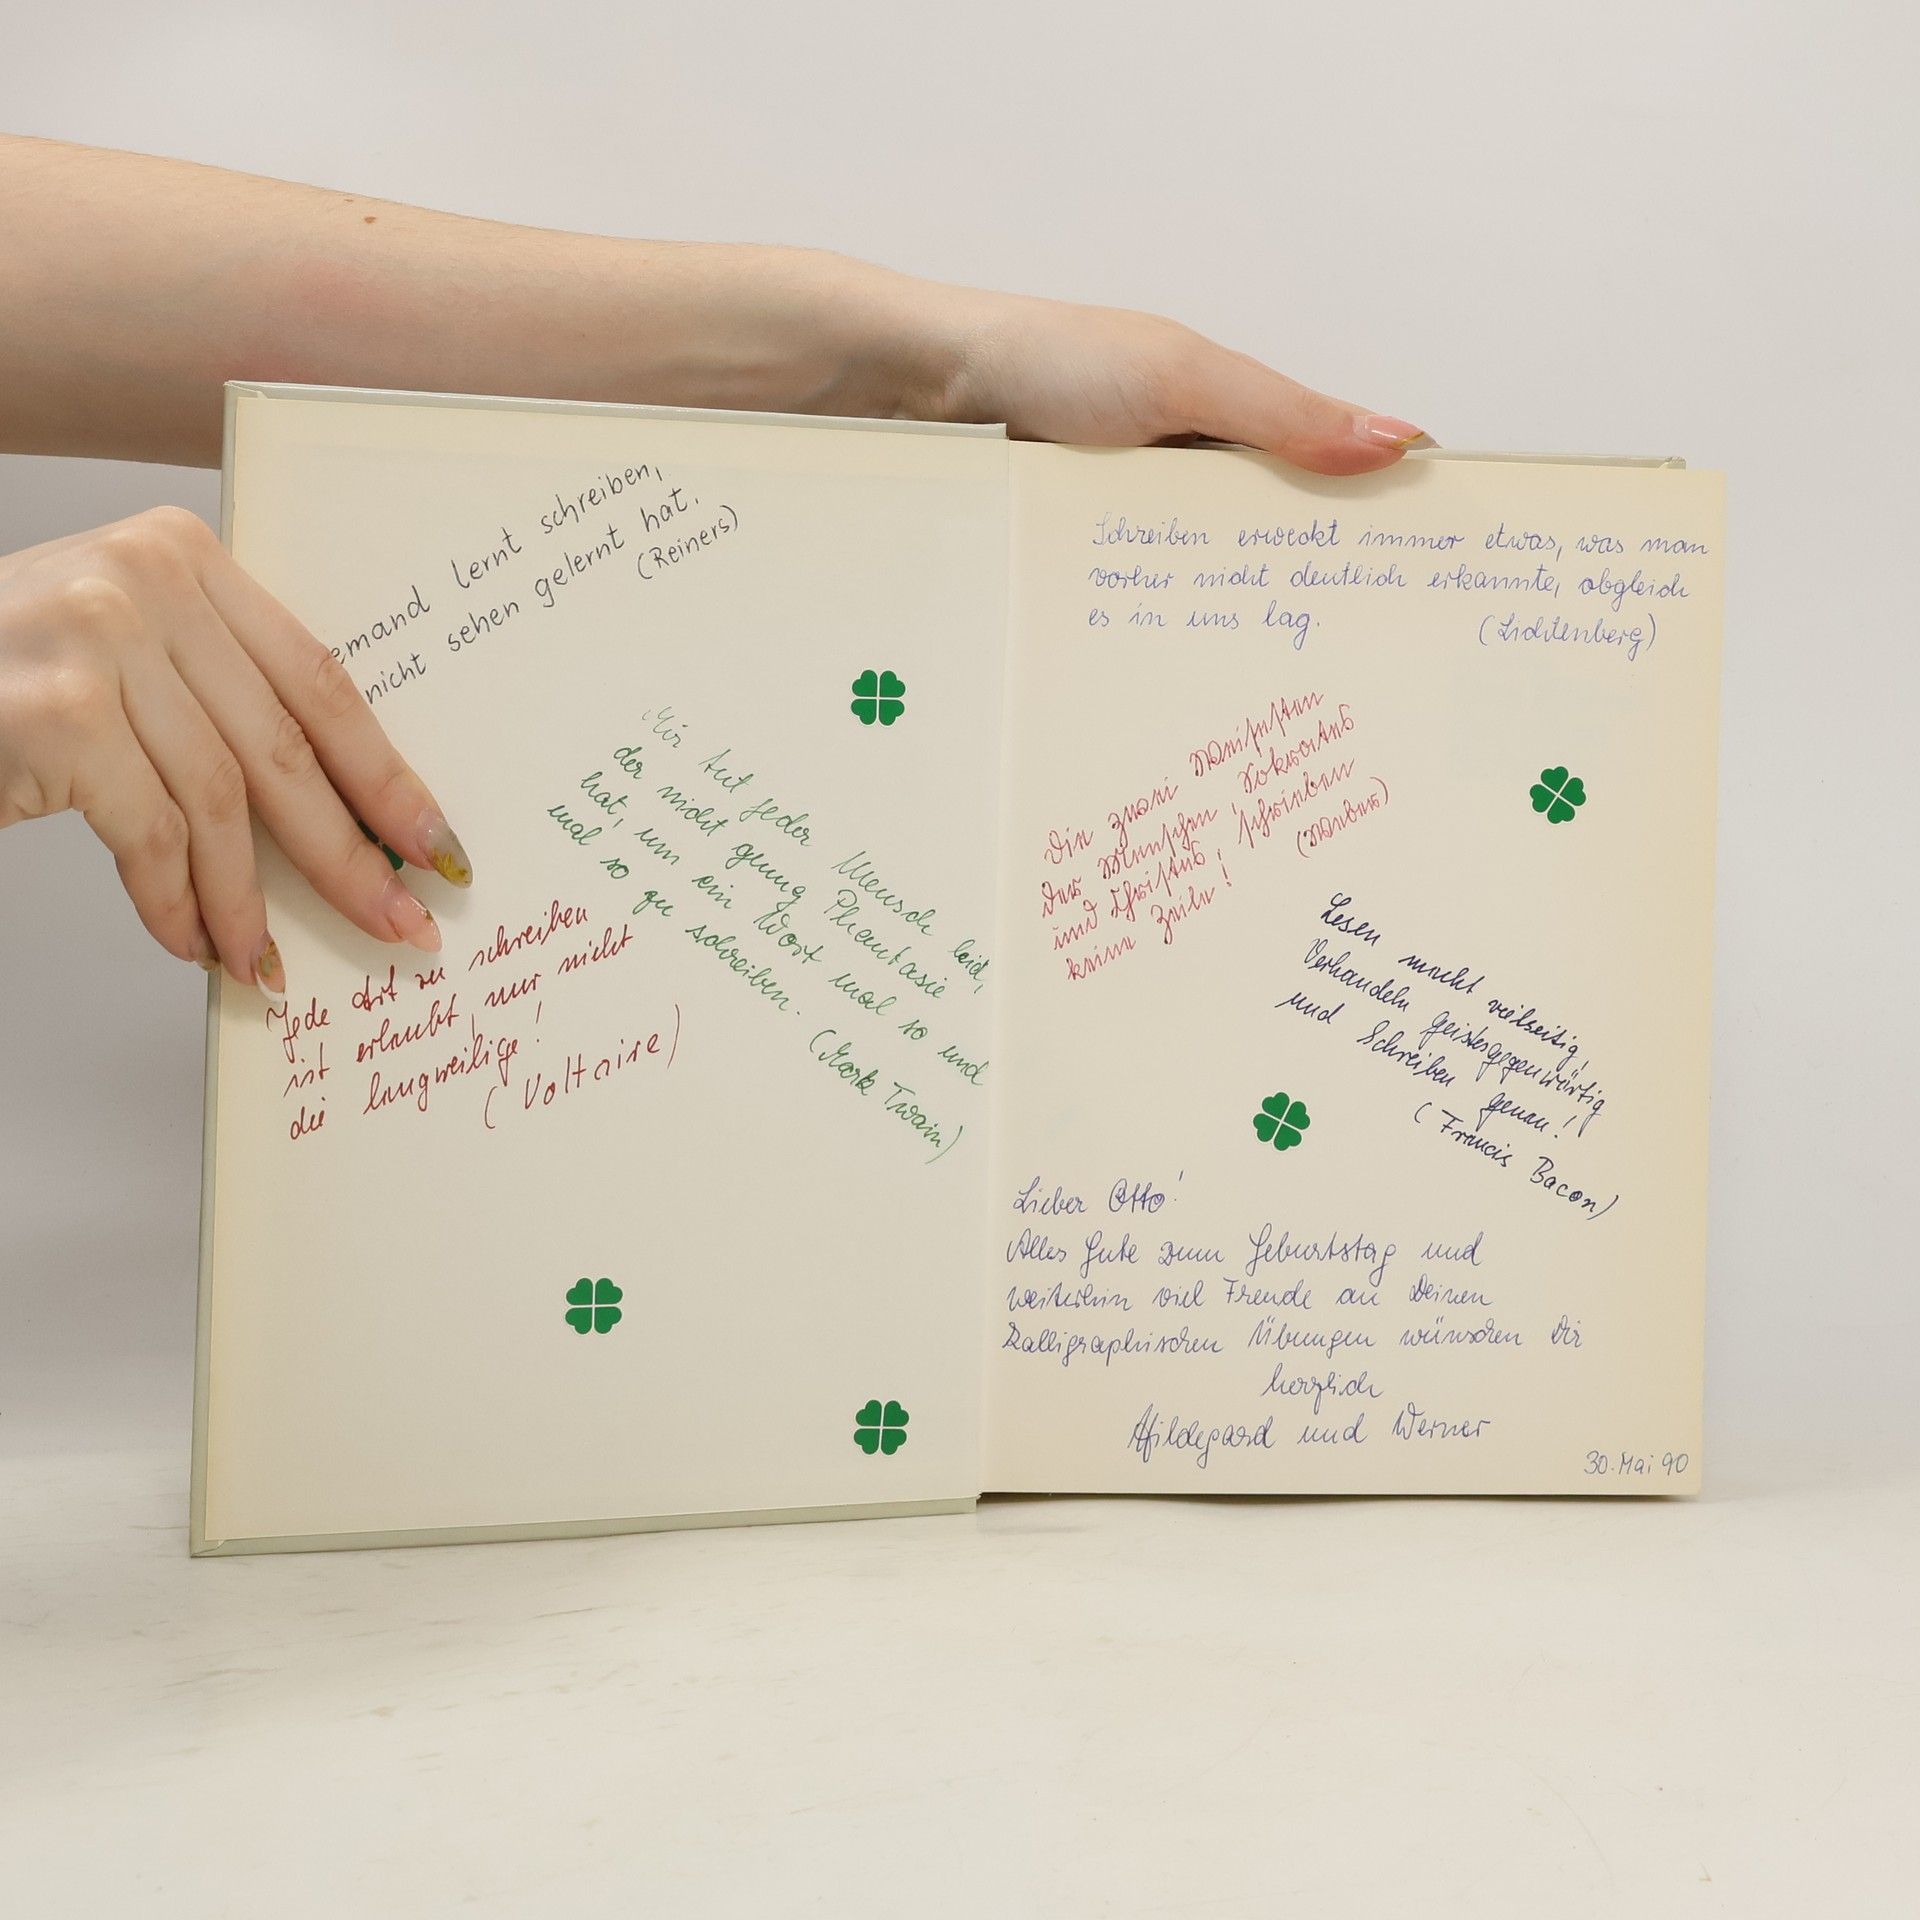 emand lernt schreiben,
nicht sehen gelernt hat.
(Reiners)
Mir tut jeder Mensch leid,
der nicht genug Phantasie
hat, um ein Wort mal so und
mal so zu schreiben.
(Mark Twain)
Jede Art zu schreiben
ist erlaubt, nur nicht
die langweilige!
(Voltaire)
Schreiben erweckt immer etwas, was man
vorher nicht deutlich erkannte, obgleich
es in uns lag.
(Lichtenberg)
Die zwei Weisesten
der Menschen, Sokrates
und Christus, schrieben
keine Zeile!
(Weber)
Lesen macht vielseitig,
Verhandeln geistesgegenwärtig
und Schreiben genau!
(Francis Bacon)
Lieber Otto!
Alles Gute zum Geburtstag und
weiterhin viel Freude an Deinen
kalligraphischen Übungen wünschen Dir
herzlich
Hildegard und Werner
30. Mai 90